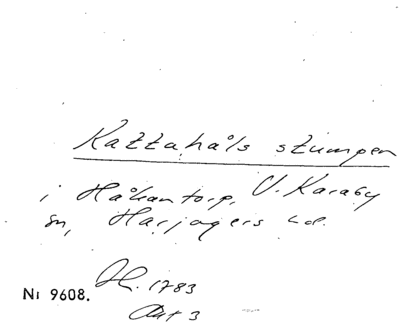 Kattahåls stumpen
i Håkantorp, V. Karaby
sn, Harjagers hd.
1783
Nr 9608.
Akt 3